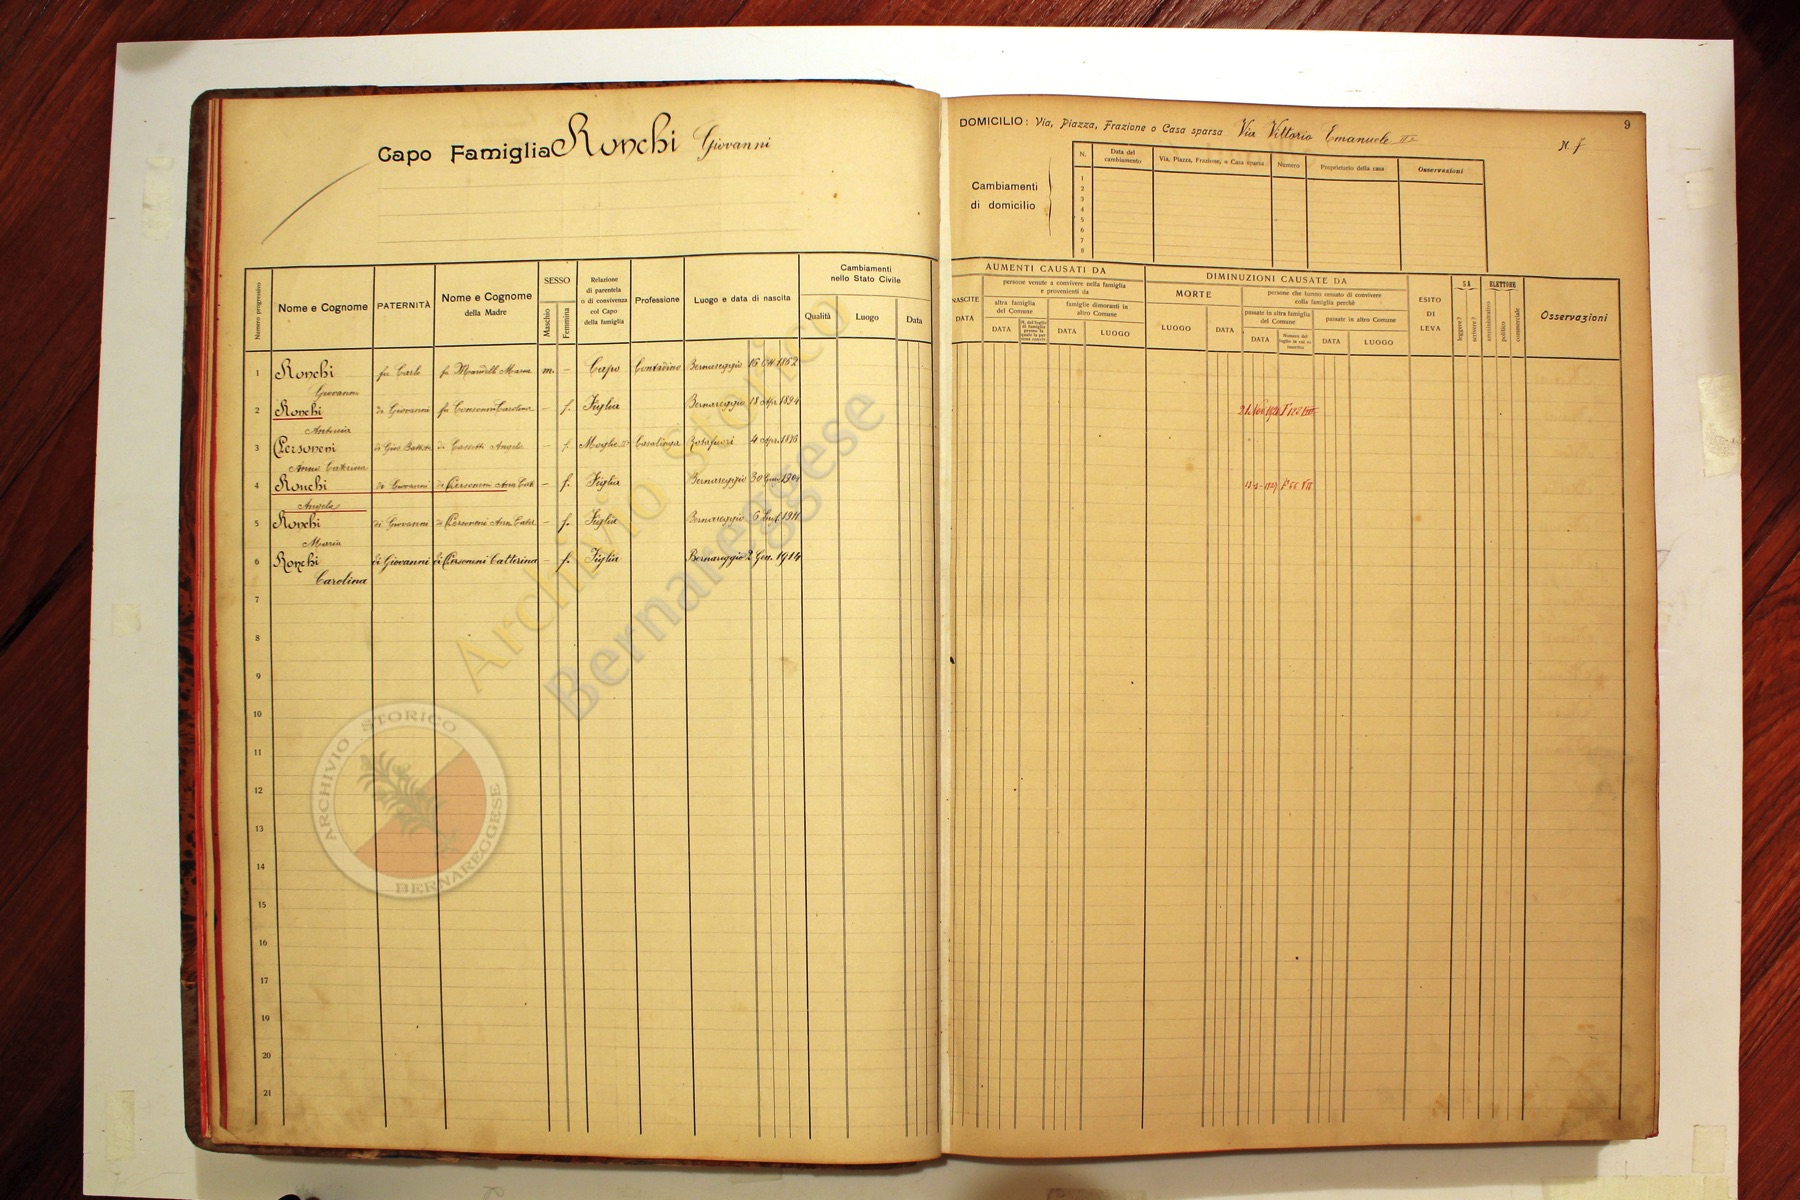 Capo Famiglia Ronchi Giovanni
DOMICILIO: Via, Piazza, Frazione o Casa sparsa Via Vittorio Emanuele II°
N. 7
9
Cambiamenti di domicilio
N. Data del cambiamento Via, Piazza, Frazione, o Casa sparsa Numero Proprietario della casa Osservazioni
1
2
3
4
5
6
7
8
Numero progressivo
Nome e Cognome
PATERNITÀ
Nome e Cognome della Madre
SESSO
Maschio
Femmina
Relazione di parentela o di convivenza col Capo della famiglia
Professione
Luogo e data di nascita
Cambiamenti nello Stato Civile
Qualità Luogo Data
AUMENTI CAUSATI DA
NASCITE
DATA
persone venute a convivere nella famiglia e provenienti da
altra famiglia del Comune
DATA
famiglie dimoranti in altro Comune
DATA LUOGO
DIMINUZIONI CAUSATE DA
MORTE
LUOGO DATA
persone che hanno cessato di convivere colla famiglia perchè
passate in altra famiglia del Comune
DATA
Numero del foglio in cui va inscritto
passate in altro Comune
DATA LUOGO
ESITO DI LEVA
SA
leggere?
scrivere?
ELETTORE
amministrativo
politico
commerciale
Osservazioni
1 Ronchi Giovanni fu Carlo fu Mandelli Maria m. - Capo Contadino Bernareggio 16 Ott. 1862
2 Ronchi Antonia di Giovanni fu Consonni Carolina - f. Figlia Bernareggio 18 Apr. 1894
3 Personeni Anna Caterina di Giov. Battista di Angela - f. Moglie Casalinga Rotafuori 4 Apr.
4 Ronchi Angela di Giovanni di Personeni Ann Cat. - f. Figlia Bernareggio 30
5 Ronchi Maria di Giovanni di Personeni Ann Cater. - f. Figlia Bernareggio 6 1911
6 Ronchi Carolina di Giovanni di Personeni Catterina - f. Figlia Bernareggio 2 Gen. 1914
7
8
9
10
11
12
13
14
15
16
17
18
19
20
21
Archivio Storico
Bernareggese
ARCHIVIO STORICO
BERNAREGGESE